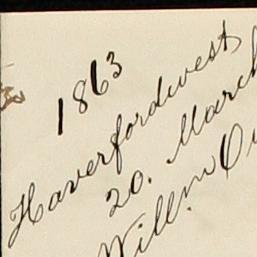 1863
Haverfordwest
20. March
Willm